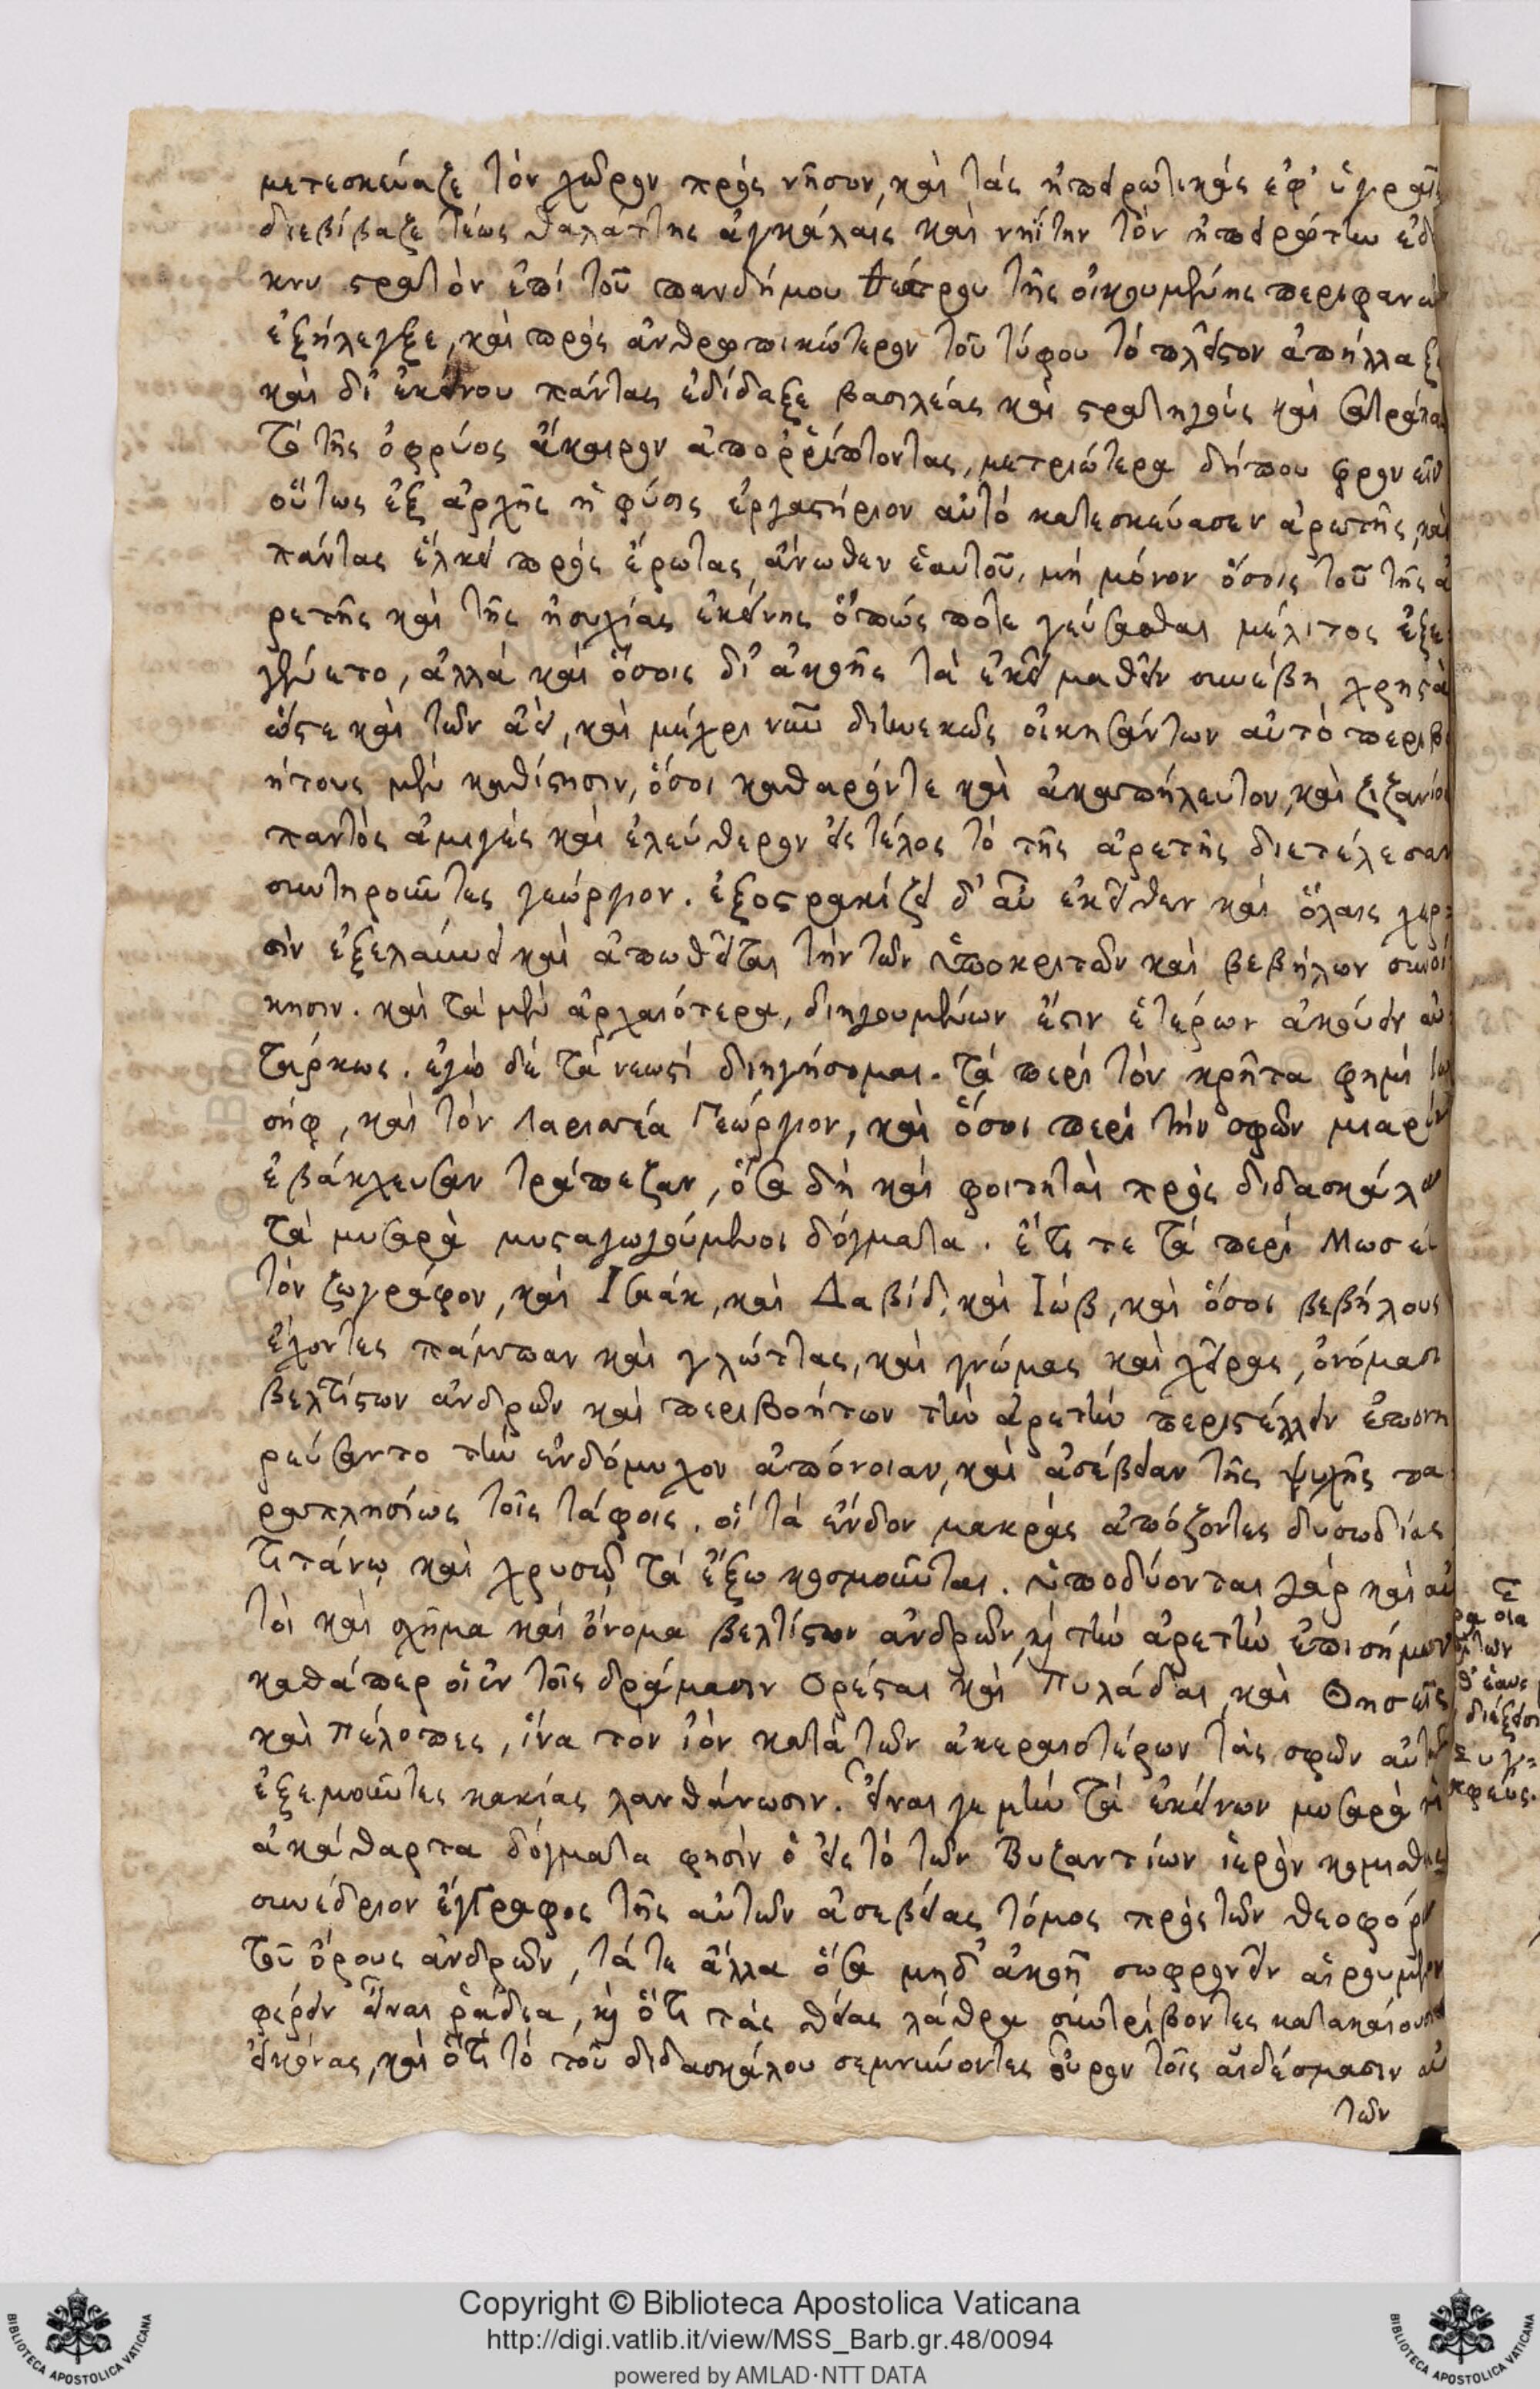 μετεσκεύαζε τὸν χῶρον πρὸς νῆσον, καὶ τὰς ἠπειρωτικὰς ἐφ' ὑγραῖς
διεβίβαζε τέως θαλάττης ἀγκάλαις καὶ νηΐτην τὸν ἠπειρώτην ἐδεί
κνυ στρατὸν ἐπὶ τοῦ πανδήμου θεάτρου τῆς οἰκουμένης περιφανῶς
ἐξήλεγξε, καὶ πρὸς ἀνθρωπικώτερον τοῦ τύφου τὸ πλεῖστον ἀπήλλαξε
καὶ δι' ἐκείνου πάντας ἐδίδαξε βασιλέας καὶ στρατηγοὺς καὶ σατράπας
τὸ τῆς ὀφρύος ἄκαιρον ἀποῤῥίπτοντας, μετριώτερα δήπου φρονεῖν
οὕτως ἐξ ἀρχῆς ἡ φύσις ἐργαστήριον αὐτὸ κατεσκεύασεν ἀρετῆς, καὶ
πάντας ἕλκει πρὸς ἔρωτας ἄνωθεν ἑαυτοῦ, μὴ μόνον ὅσοις τοῦ τῆς ἀ
ρετῆς καὶ τῆς ἡσυχίας ἐκείνης ὅπώς ποτε γεύσασθαι μέλιτος ἐξε
γένετο, ἀλλὰ καὶ ὅσοις δι' ἀκοῆς τὰ ἐκεῖ μαθεῖν συνέβη χρηστὰ
ὥστε καὶ τῶν ἀεὶ, καὶ μέχρι νῦν διηνεκῶς οἰκησάντων αὐτὸ περιβο
ήτους μὲν καθίστησιν, ὅσοι καθαρόν τε καὶ ἀκαπήλευτον, καὶ ζιζανίου
παντὸς ἀμιγὲς καὶ ἐλεύθερον εἰς τέλος τὸ τῆς ἀρετῆς διετέλεσαν
συντηροῦντες γεώργιον. ἐξοστρακίζει δ' αὖ ἐκεῖθεν καὶ ὅλαις χερ
σὶν ἐξελαύνει καὶ ἀπωθεῖται τὴν τῶν ὑποκριτῶν καὶ βεβήλων συνοί
κησιν. καὶ τὰ μὲν ἀρχαιότερα, διηγουμένων ἔστιν ἑτέρων ἀκούειν αὐ
τάρκως. ἐγὼ δὲ τὰ νεωστὶ διηγήσομαι. τὰ περὶ τὸν κρῆτα φημὶ ἰω
σὴφ, καὶ τὸν λαρισσέα Γεώργιον, καὶ ὅσοι περὶ τὴν σφῶν μιαρὰν
ἐβάκχευσαν τράπεζαν, ὅσα δὴ καὶ φοιτηταὶ πρὸς διδασκάλων
τὰ μυσαρὰ μυσταγωγούμενοι δόγματα. ἔτι τε τὰ περὶ Μωσέα
τὸν ζωγράφον, καὶ Ἰσαὰκ, καὶ Δαβὶδ, καὶ Ἰὼβ, καὶ ὅσοι βεβήλους
ἔχοντες πάμπαν καὶ γλώττας, καὶ γνώμας καὶ χεῖρας, ὀνόμασι
βελτίστων ἀνδρῶν καὶ περιβοήτων τὴν ἀρετὴν περιστέλλειν ἐπονη
ρεύσαντο τὴν ἐνδόμυχον ἀπόνοιαν, καὶ ἀσέβειαν τῆς ψυχῆς πα
ραπλησίως τοῖς τάφοις. οἳ τὰ ἔνδον μακρὰς ἀπόζοντες δυσωδίας
τιτάνῳ καὶ χρυσῷ τὰ ἔξω κοσμοῦνται. ὑποδύονται γὰρ καὶ αὐ
τοὶ καὶ σχῆμα καὶ ὄνομα βελτίστων ἀνδρῶν, κ τὴν ἀρετὴν ἐπισήμων
καθάπερ οἱ ἐν τοῖς δράμασιν Ὀρέσται καὶ Πυλάδαι, καὶ Θησεῖς
καὶ Πέλοπες, ἵνα τὸν ἰὸν κατὰ τῶν ἀκεραιοτέρων τὰς σφῶν αὐτῶν
ἐξεμοῦντες κακίας λανθάνωσιν. εἶναι γε μὴν τὰ ἐκείνων μυσαρὰ κ
ἀκάθαρτα δόγματα φησὶν ὁ εἰς τὸ τῶν Βυζαντίων ἱερὸν κομισθεὶς
συνέδριον ἔγγραφος τῆς αὐτῶν ἀσεβείας τόμος πρὸς τῶν θεοφόρων
τοῦ ὄρους ἀνδρῶν, τά τε ἄλλα ὅσα μηδ' ἀκοῇ σωφρονεῖν αἱρουμένων
φέρειν εἶναι ῥᾴδια, κ ὅτι τὰς θείας λάθρα συντρίβοντες κατακαίουσιν
εἰκόνας, καὶ ὅτι τὸ τοῦ διδασκάλου σεμνύνοντες οὖρον τοῖς αἰδέσμασιν αὐ
τῶν